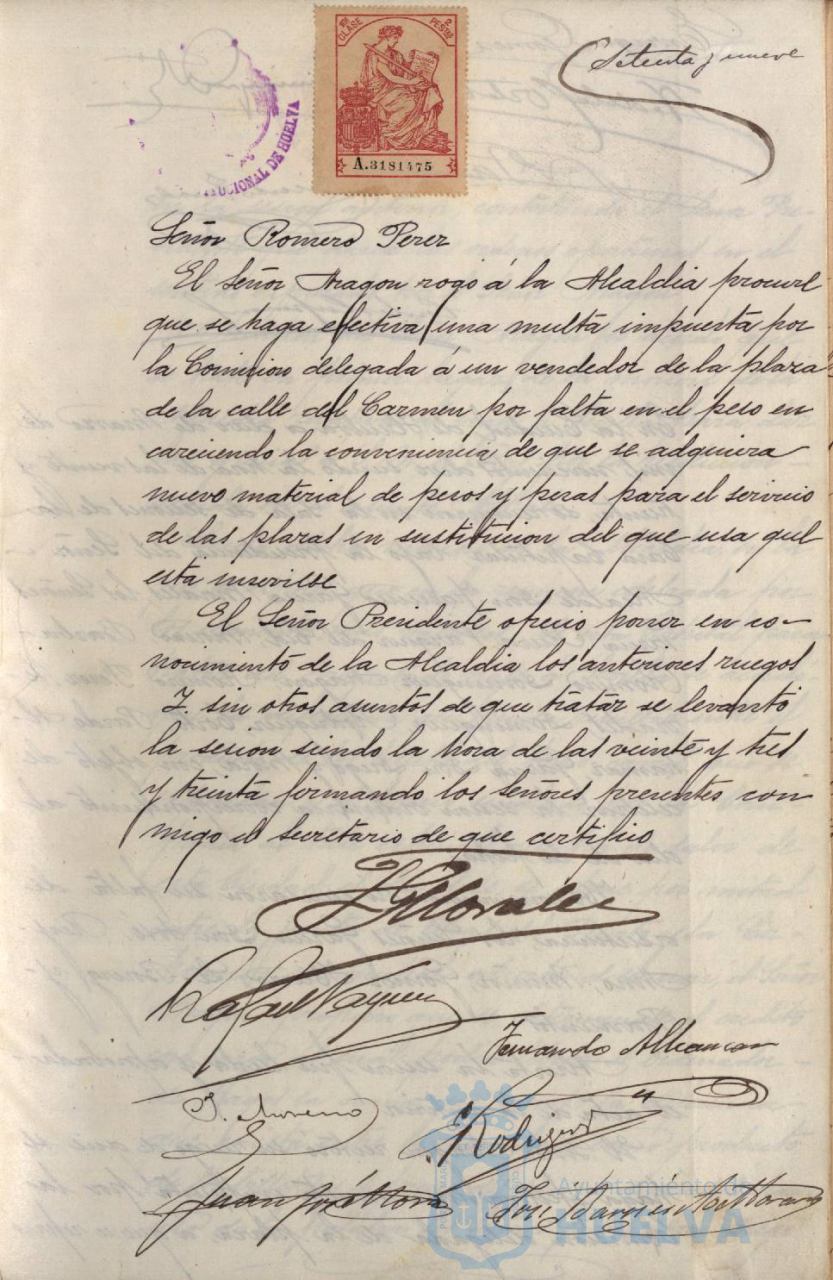 11ª CLASE 2 PESTAS
A.3181475
Setenta y nueve
UCIONAL DE HUELVA
Señor Romero Perez
El Señor Aragon rogó á la Alcaldia procure
que se haga efectiva una multa impuesta por
la Comision delegada á un vendedor de la plaza
de la calle del Carmen por falta en el peso en
careciendo la conveniencia de que se adquiera
nuevo material de pesos y pesas para el servicio
de las plazas en sustitucion del que usa qul
está inservible
El Señor Presidente ofrecio poner en co-
nocimiento de la Alcaldia los anteriores ruegos
Y. sin otros asuntos de que tratar se levantó
la sesion siendo la hora de las veinte y tres
y treinta firmando los Señores presentes con
migo el Secretario de que certifico
Morales
Rafael Vazquez
Fernando
J. Moreno
Rodriguez
Juan José Mora
José
Ayuntamiento de
HUELVA